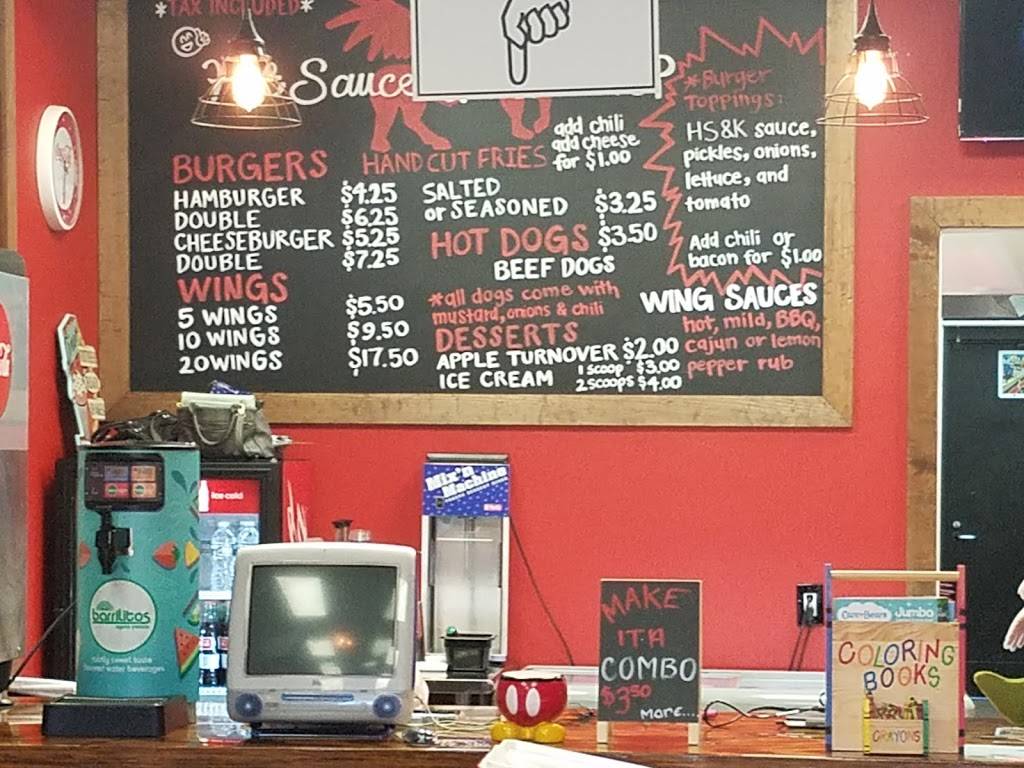 *TAX INCLUDED*
Sauce
P
BURGERS
HAMBURGER $4.25
DOUBLE $6.25
CHEESEBURGER $5.25
DOUBLE $7.25
WINGS
5 WINGS $5.50
10 WINGS $9.50
20 WINGS $17.50
HAND CUT FRIES
add chili
add cheese
for $1.00
SALTED
or SEASONED $3.25
HOT DOGS $3.50
BEEF DOGS
*all dogs come with
mustard, onions & chili
DESSERTS
APPLE TURNOVER $2.00
ICE CREAM 1 SCOOP $3.00
2 SCOOPS $4.00
*Burger
Toppings:
HS&K sauce,
pickles, onions,
lettuce, and
tomato
Add chili or
bacon for $1.00
WING SAUCES
hot, mild, BBQ,
cajun or lemon
pepper rub
ice cold
Mix'n
Machine
barrilitos
MAKE
IT A
COMBO
$3.50
MORE...
Care Bears Jumbo
COLORING
BOOKS
CRAYONS